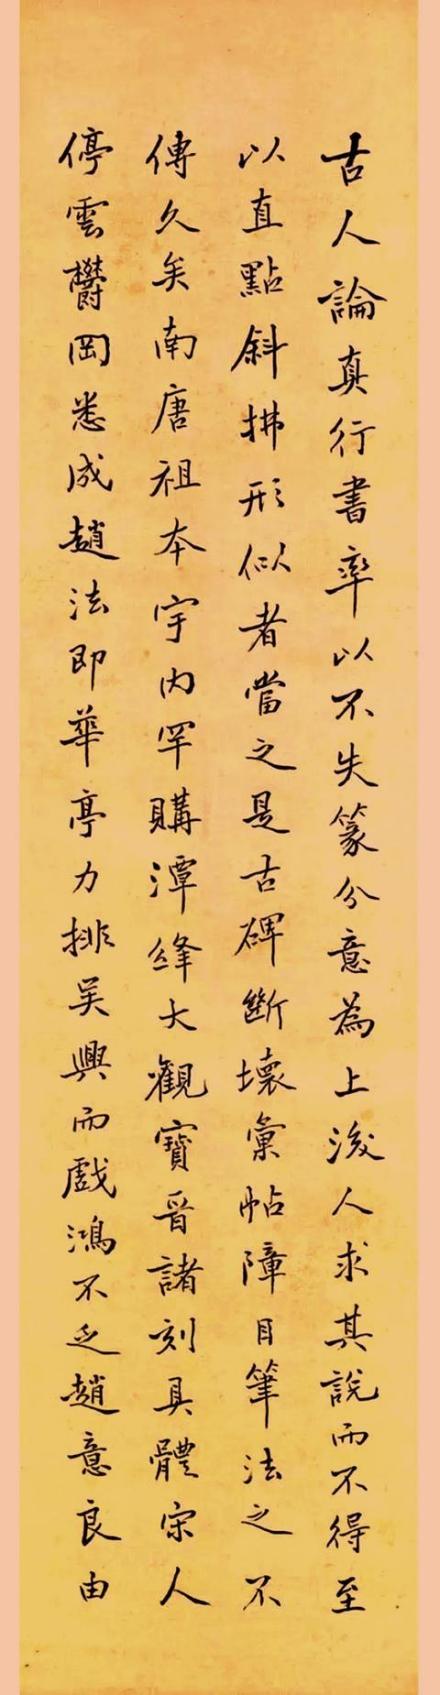 古人論真行書率以不失篆分意為上後人求其說而不得至
以直點斜拂形似者當之是古碑斷壞彙帖障目筆法之不
傳久矣南唐祖本宇內罕購潭絳大觀寶晉諸刻具體宋人
停雲欝岡悉成趙法即華亭力排吴興而戲鴻不乏趙意良由